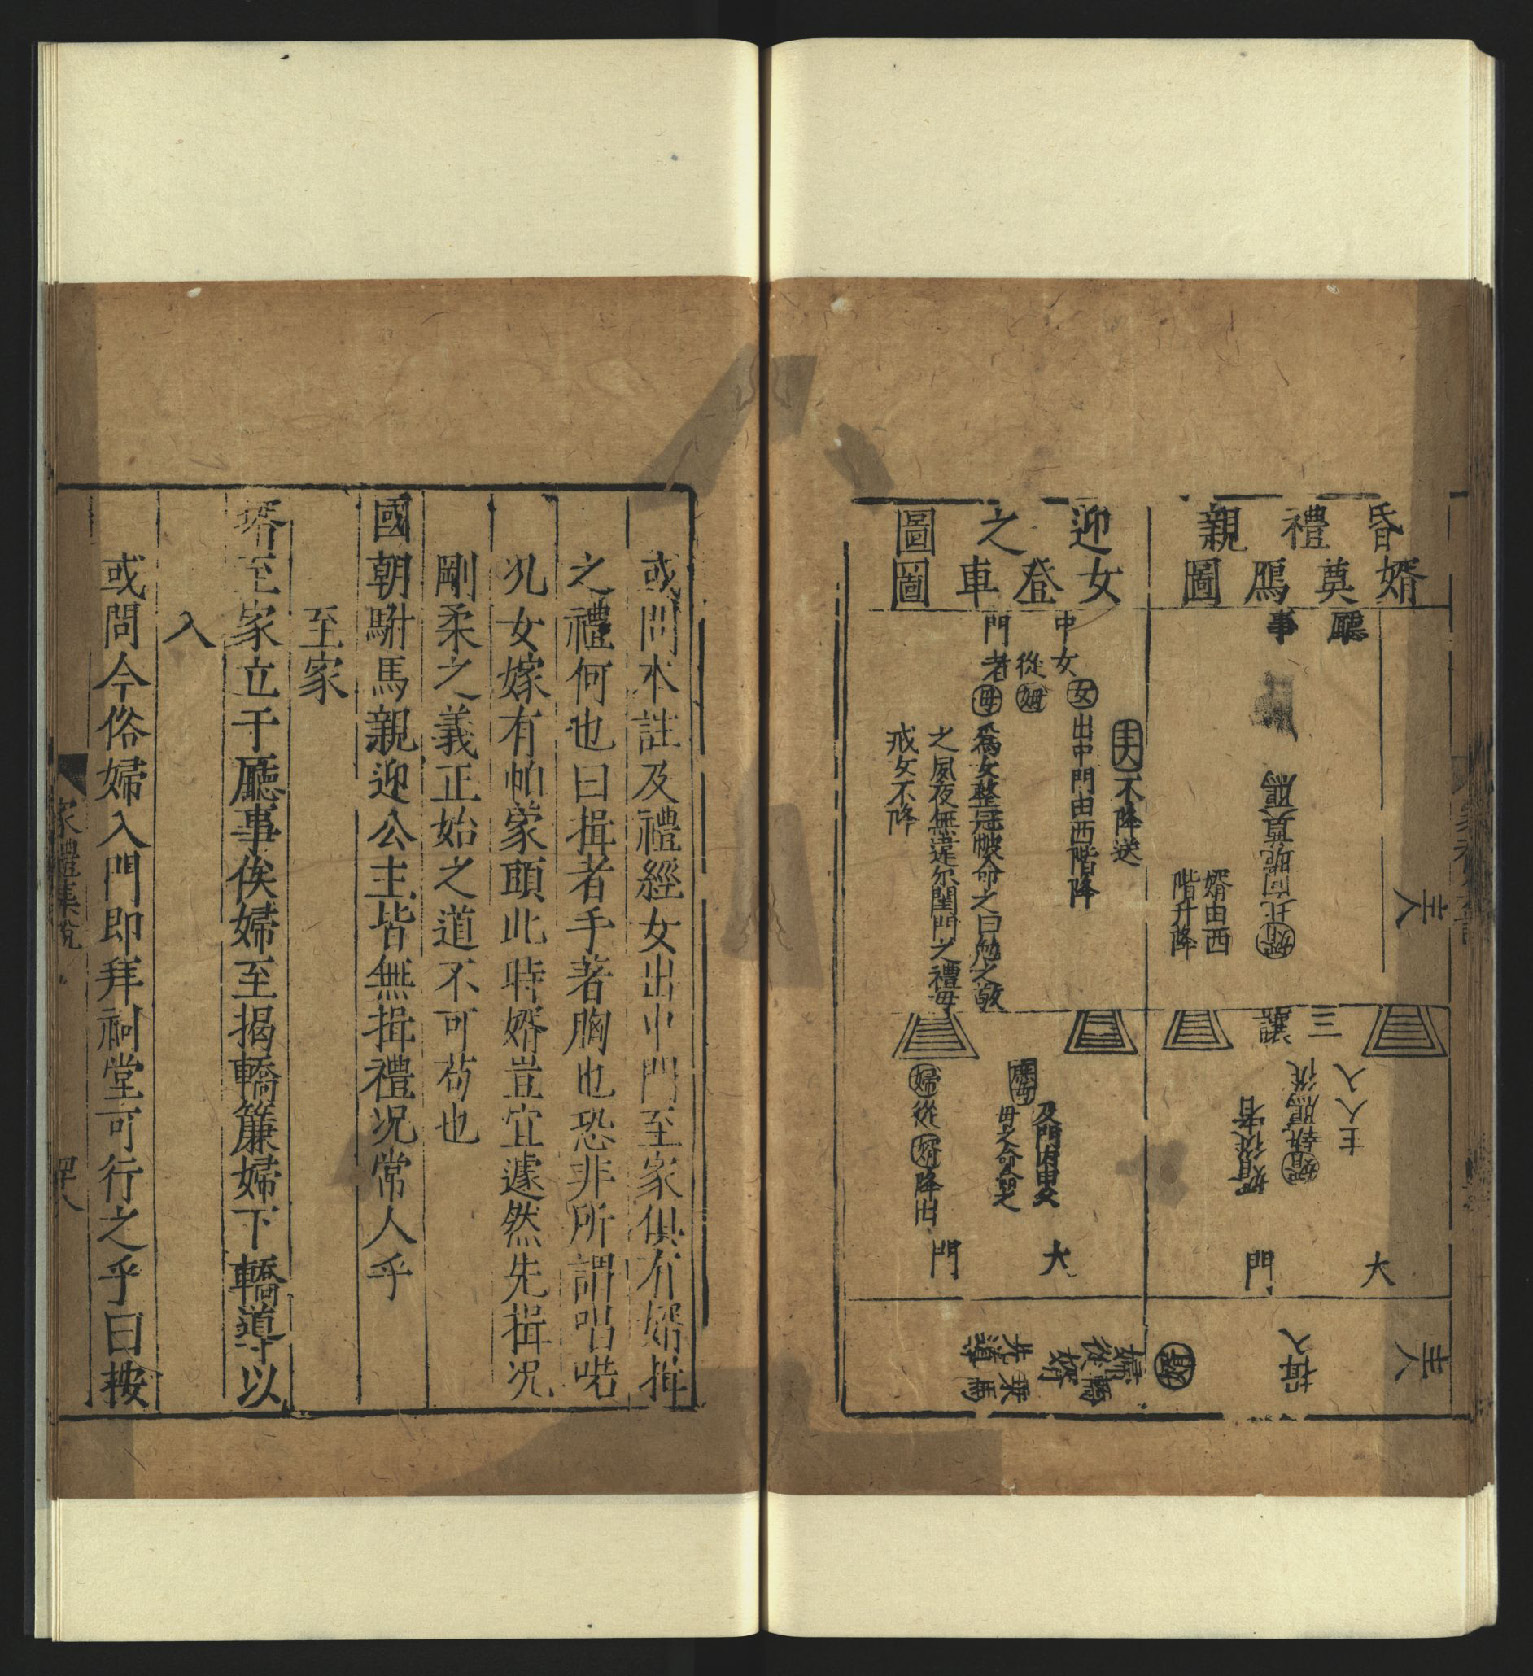 昏禮親
迎之圖
婿奠鴈圖
女登車圖
廳事
主人
婿北向跪奠鴈
婿由西
階升降
三讓
主人入
婿執鴈從
婿從者
大門
主人
揖入
中門
女從者
主人不降送
女出中門由西階降
姆
母爲女整冠帔命之曰勉之敬
之夙夜無違尔閨門之禮母
戒女不降
及門內申父
母之命
婦從婿降出
大門
婦轎
從
婿
乘馬
先導
或問本註及禮經女出中門至家俱有婿揖
之禮何也曰揖者手著胸也恐非所謂唱喏
况女嫁有帕蒙頭此時婿豈宜遽然先揖况
剛柔之義正始之道不可苟也
國朝駙馬親迎公主皆無揖禮况常人乎
至家
壻至家立于廳事俟婦至揭轎簾婦下轎導以
入
或問今俗婦入門即拜祠堂可行之乎曰按
家禮集說